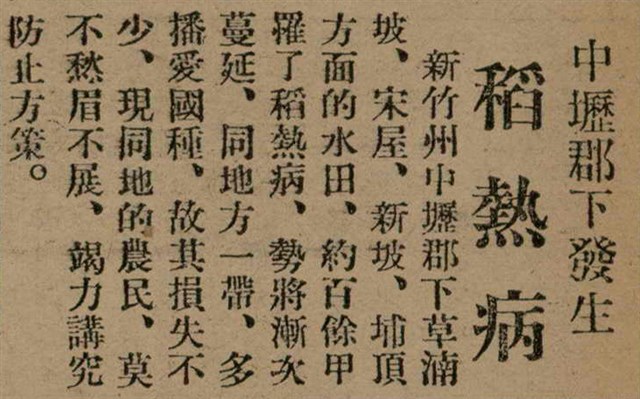 中壢郡下發生
稻熱病
新竹州中壢郡下草湳
坡、宋屋、新坡、埔頂
方面的水田、約百餘甲
羅了稻熱病、勢將漸次
蔓延、同地方一帶、多
播愛國種、故其損失不
少、現同地的農民、莫
不愁眉不展、竭力講究
防止方策。